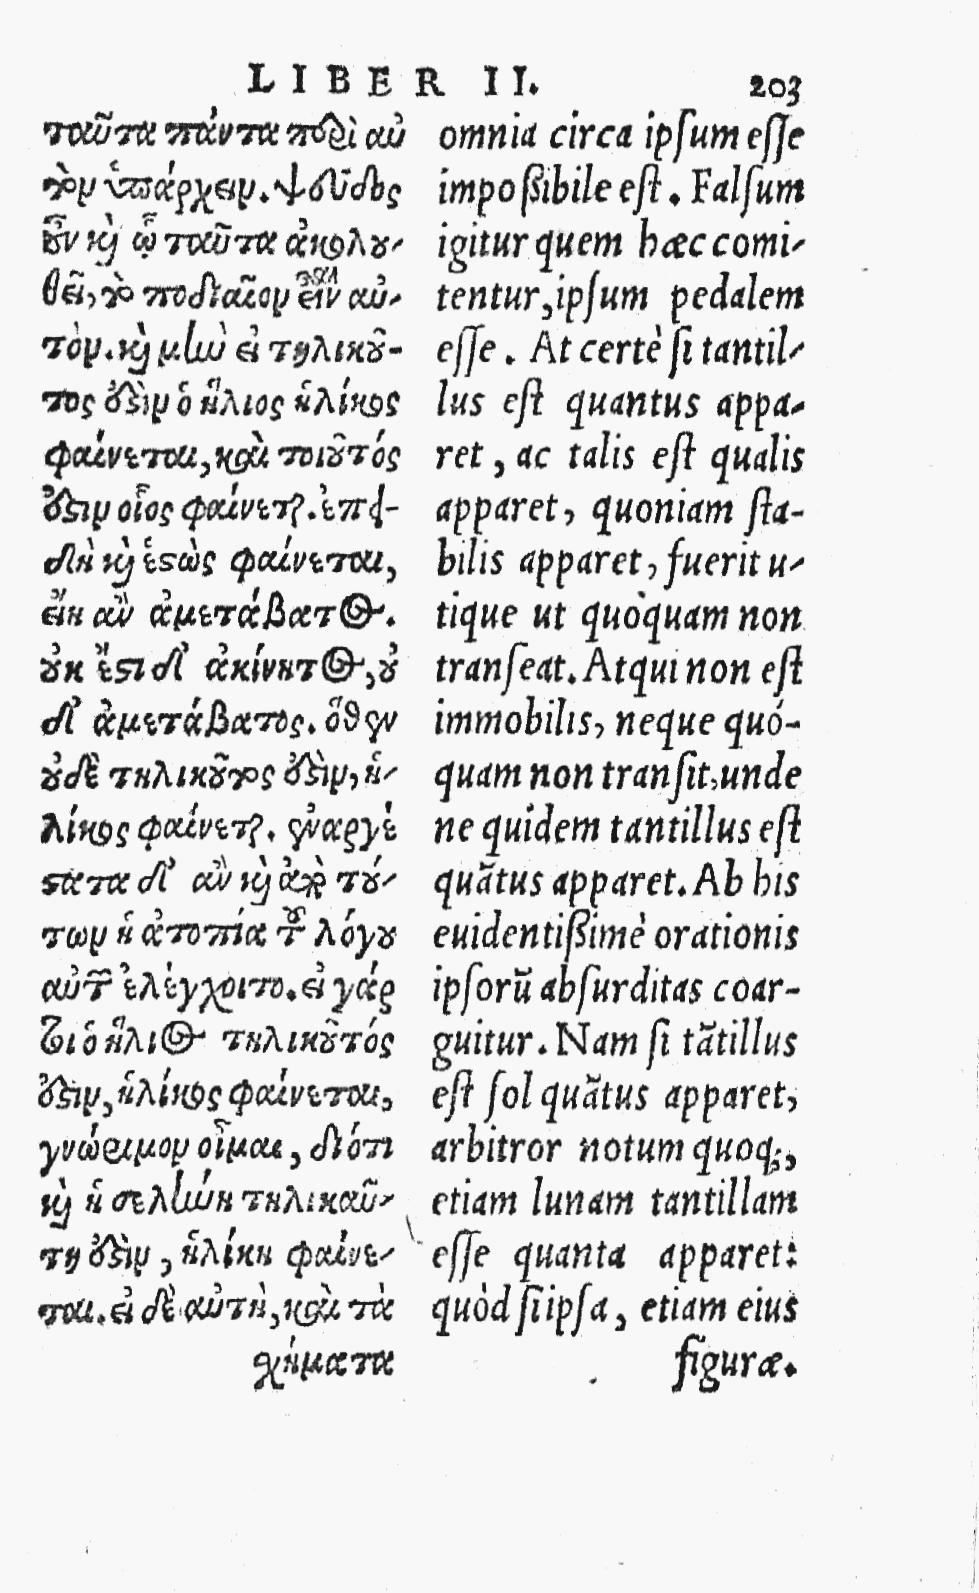 LIBER II. 203
ταῦτα πάντα περὶ αὐ
τὸν ὑπάρχειν. ψεῦδος
οὖν καὶ ᾧ ταῦτα ἀκολου-
θεῖ, τὸ ποδιαῖον εἶναι αὐ-
τόν. καὶ μὴν εἰ τηλικοῦ-
τος ὅστιν ὁ ἥλιος ἡλίκος
φαίνεται, καὶ τοιοῦτός
ὅστιν οἷος φαίνεται. ἐπει-
δὴ καὶ ἑστὼς φαίνεται,
εἴη ἂν ἀμετάβατος.
οὐκ ἔστι δ' ἀκίνητος, οὐ
δ' ἀμετάβατος. ὅθεν
οὐδὲ τηλικοῦτος ὅστιν, ἡ-
λίκος φαίνεται. ἐναργέ
στατα δ' ἂν καὶ ἀπὸ τού-
των ἡ ἀτοπία τοῦ λόγου
αὐτῶν ἐλέγχοιτο. εἰ γάρ
τοι ὁ ἥλιος τηλικοῦτός
ὅστιν, ἡλίκος φαίνεται,
γνώριμον οἶμαι, διότι
καὶ ἡ σελήνη τηλικαύ-
τη ὅστιν, ἡλίκη φαίνε-
ται. εἰ δὲ αὐτὴ, καὶ τὰ
σχήματα
omnia circa ipsum esse
impoßibile est. Falsum
igitur quem hæc comi-
tentur, ipsum pedalem
esse. At certè si tantil-
lus est quantus appa-
ret, ac talis est qualis
apparet, quoniam sta-
bilis apparet, fuerit u-
tique ut quòquam non
transeat. Atqui non est
immobilis, neque quó-
quam non transit, unde
ne quidem tantillus est
quãtus apparet. Ab his
euidentißimè orationis
ipsorũ absurditas coar-
guitur. Nam si tãtillus
est sol quãtus apparet,
arbitror notum quoq;,
etiam lunam tantillam
esse quanta apparet:
quòd si ipsa, etiam eius
figuræ.